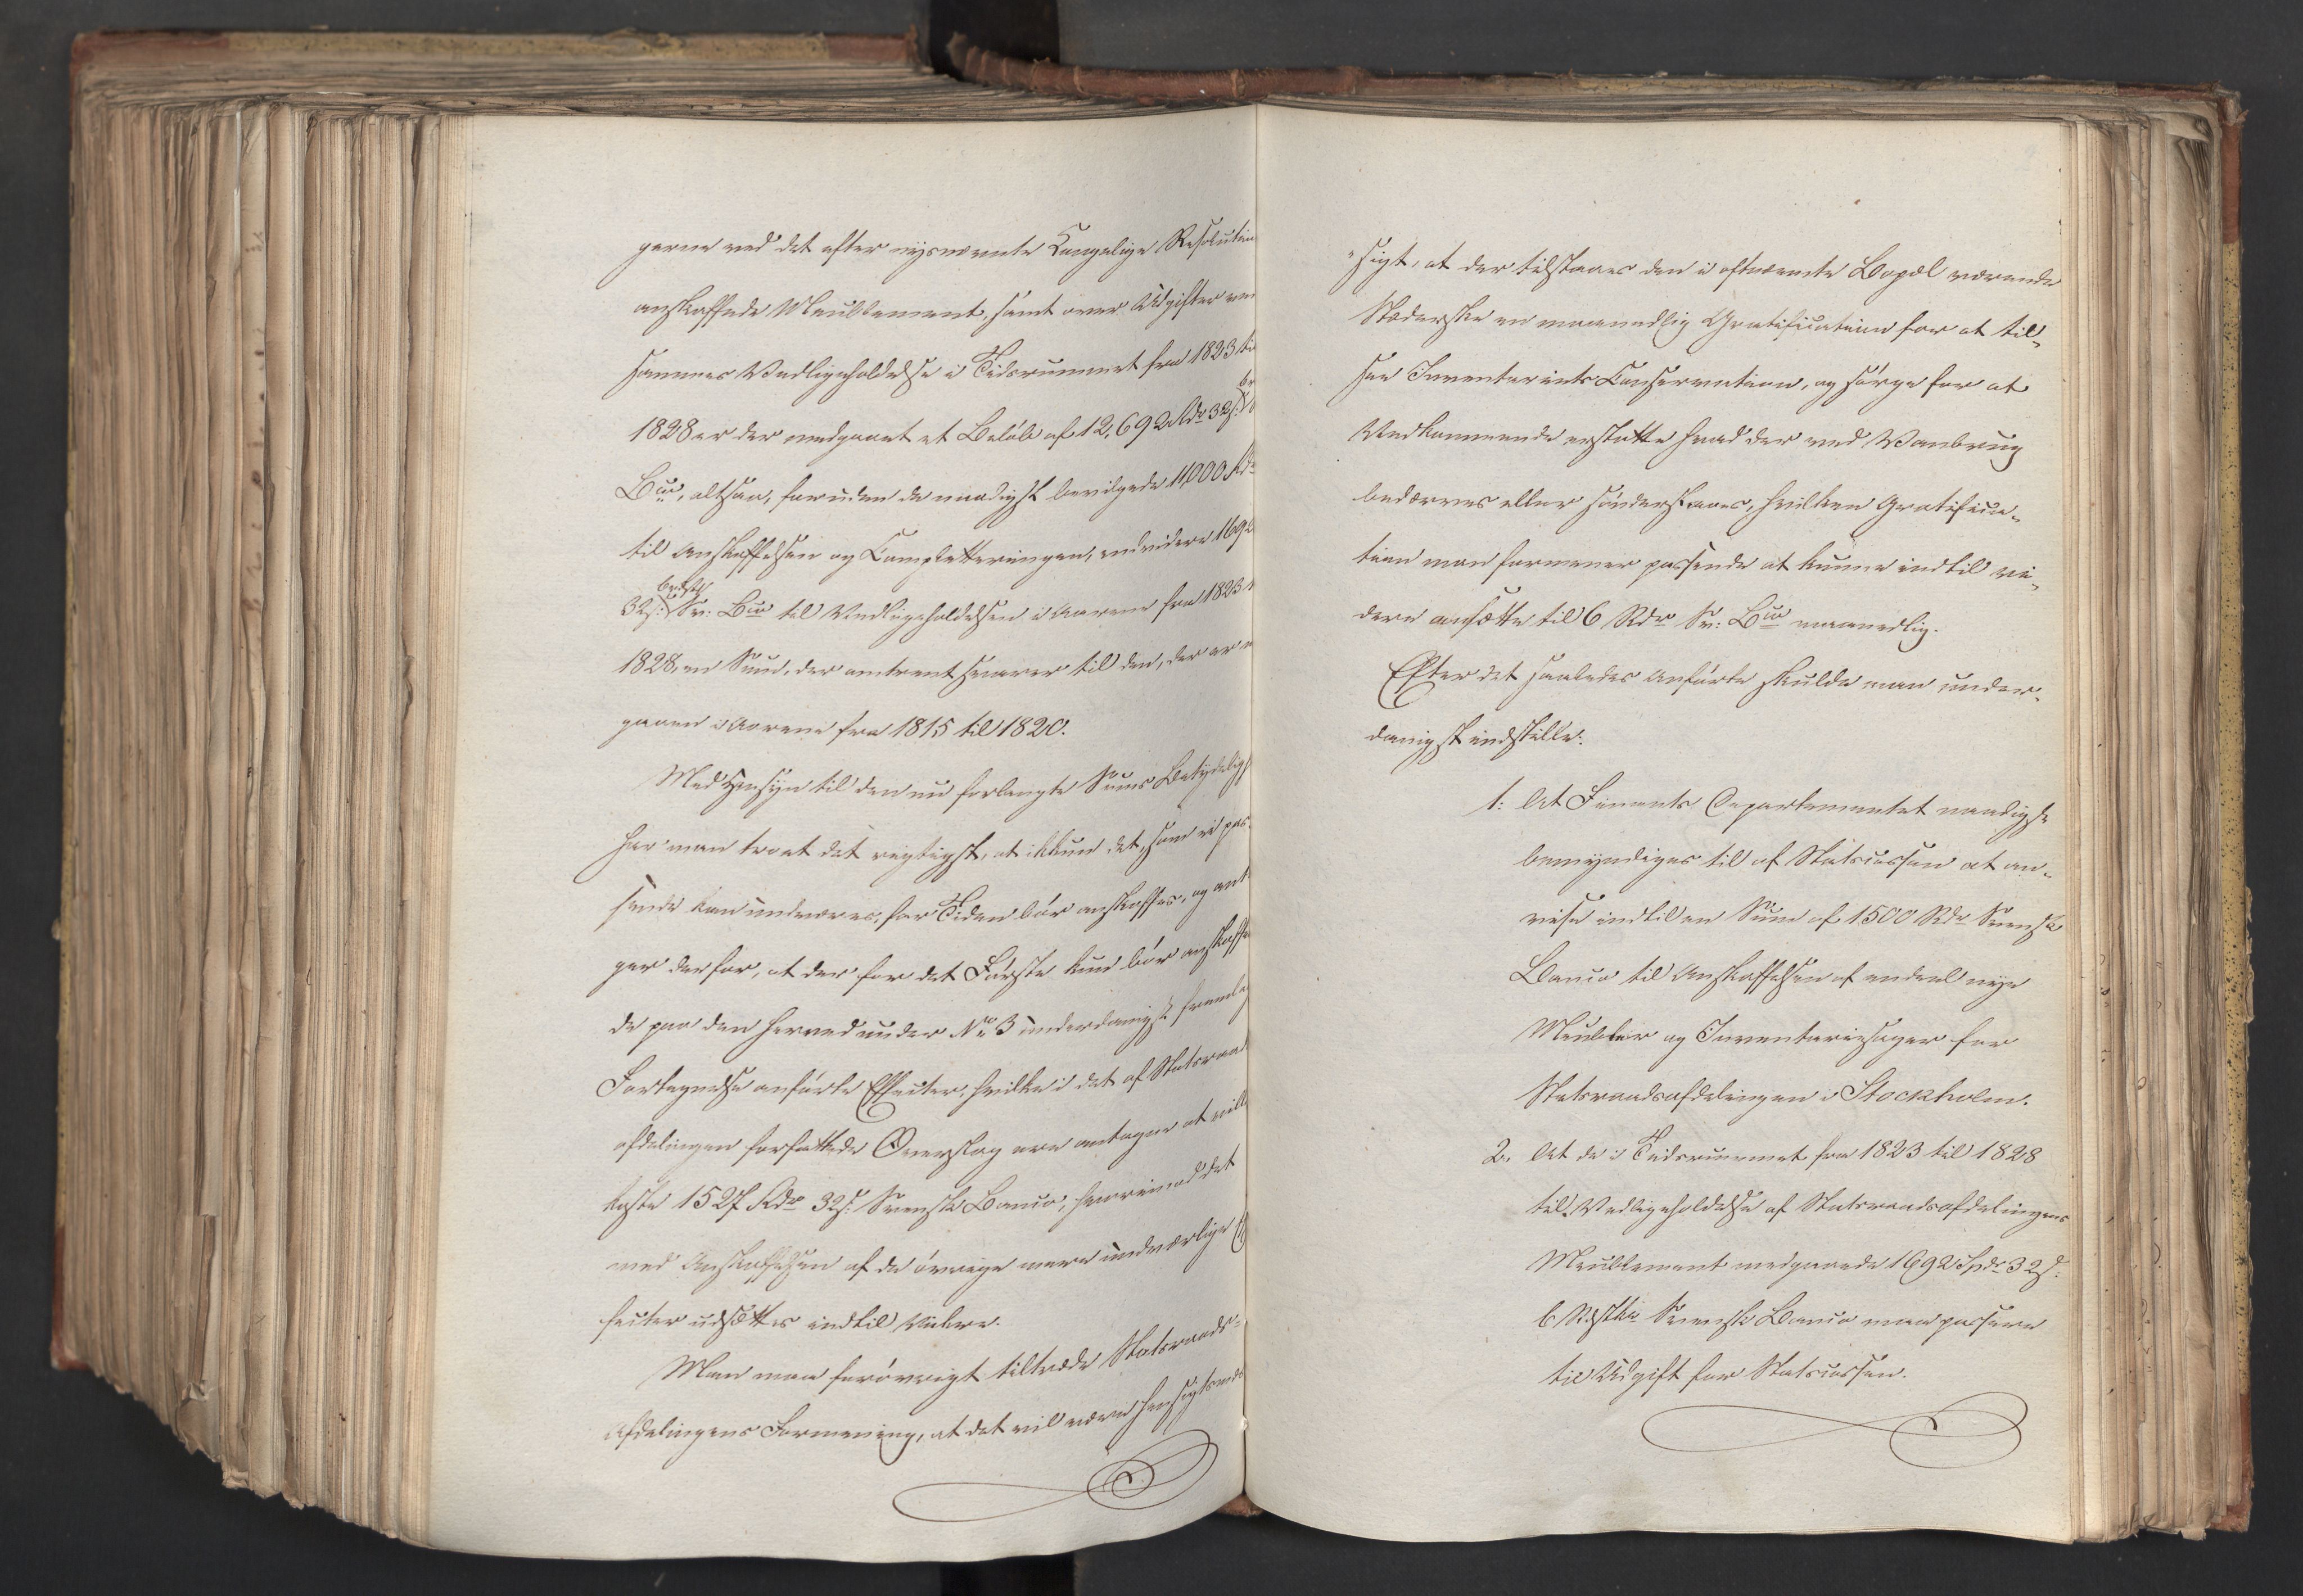 gerne ved det efter nysnævnte Kongelige Resolution
anskaffede Meublement, samt over Udgifter ved
sammes Vedligeholdelse i Tidsrummet fra 1823 til
1828 er der medgaaet et Beløb af 12,692 Rdr 32 s:
Bco, altsaa, foruden de naadigst bevilgede 11,000 Rdr
til Anskaffelsen og Completteringen, endvidere 1692
32 s: Sv: Bco til Vedligeholdelsen i Aarene fra 1823 t
1828, en Sum, der omtrent svarer til den, der er m
gaaen i Aarene fra 1815 til 1820.
Med Hensyn til den nu forlangte Sums Betydelig
har man troet det rigtigst, at ikkun det, som ei pas-
sende kan undværes, for Tiden bør anskaffes, og ant
ger derfor, at der for det Første kun bør anskaffe
de paa den herved under No 3 underdanigst fremlag
Fortegnelse anførte Effecter, hvilke i det af Statsraad
afdelingen forfattede Overslag ere antagne at ville
koste 1527 Rdr 32 s: Svensk Banco, hvorimod det
med Anskaffelsen af de øvrige mere undværlige Ef
fecter udsættes indtil Videre.
Man maa forøvrigt tiltræde Statsraads-
Afdelingens Formening, at det vil være hensigtsmæs
sigt, at der tilstaaes den i oftnævnte Bopæl værende
Stæderske en maanedlig Gratification for at til-
see Inventariets Conservation, og sørge for at
Vedkommende erstatte hvad der ved Vanbrug
bedærves eller sønderslaaes, hvilken Gratifica-
tion man formener passende at kunne indtil vi-
dere ansætte til 6 Rdr Sv: Bco maanedlig.
Efter det saaledes Anførte skulde man under-
danigst indstille:
1: At Finants Departementet naadigst
bemyndiges til af Statscassen at an-
vise indtil en Sum af 1500 Rdr Svensk
Banco til Anskaffelsen af endeel nye
Meubler og Inventariesager for
Statsraadsafdelingen i Stockholm.
2. At de i Tidsrummet fra 1823 til 1828
til Vedligeholdelse af Statsraadsafdelingens
Meublement medgaaede 1692 Spdr 32 s:
6 Rdstkr Svensk Banco maa passere
til Udgift for Statscassen.